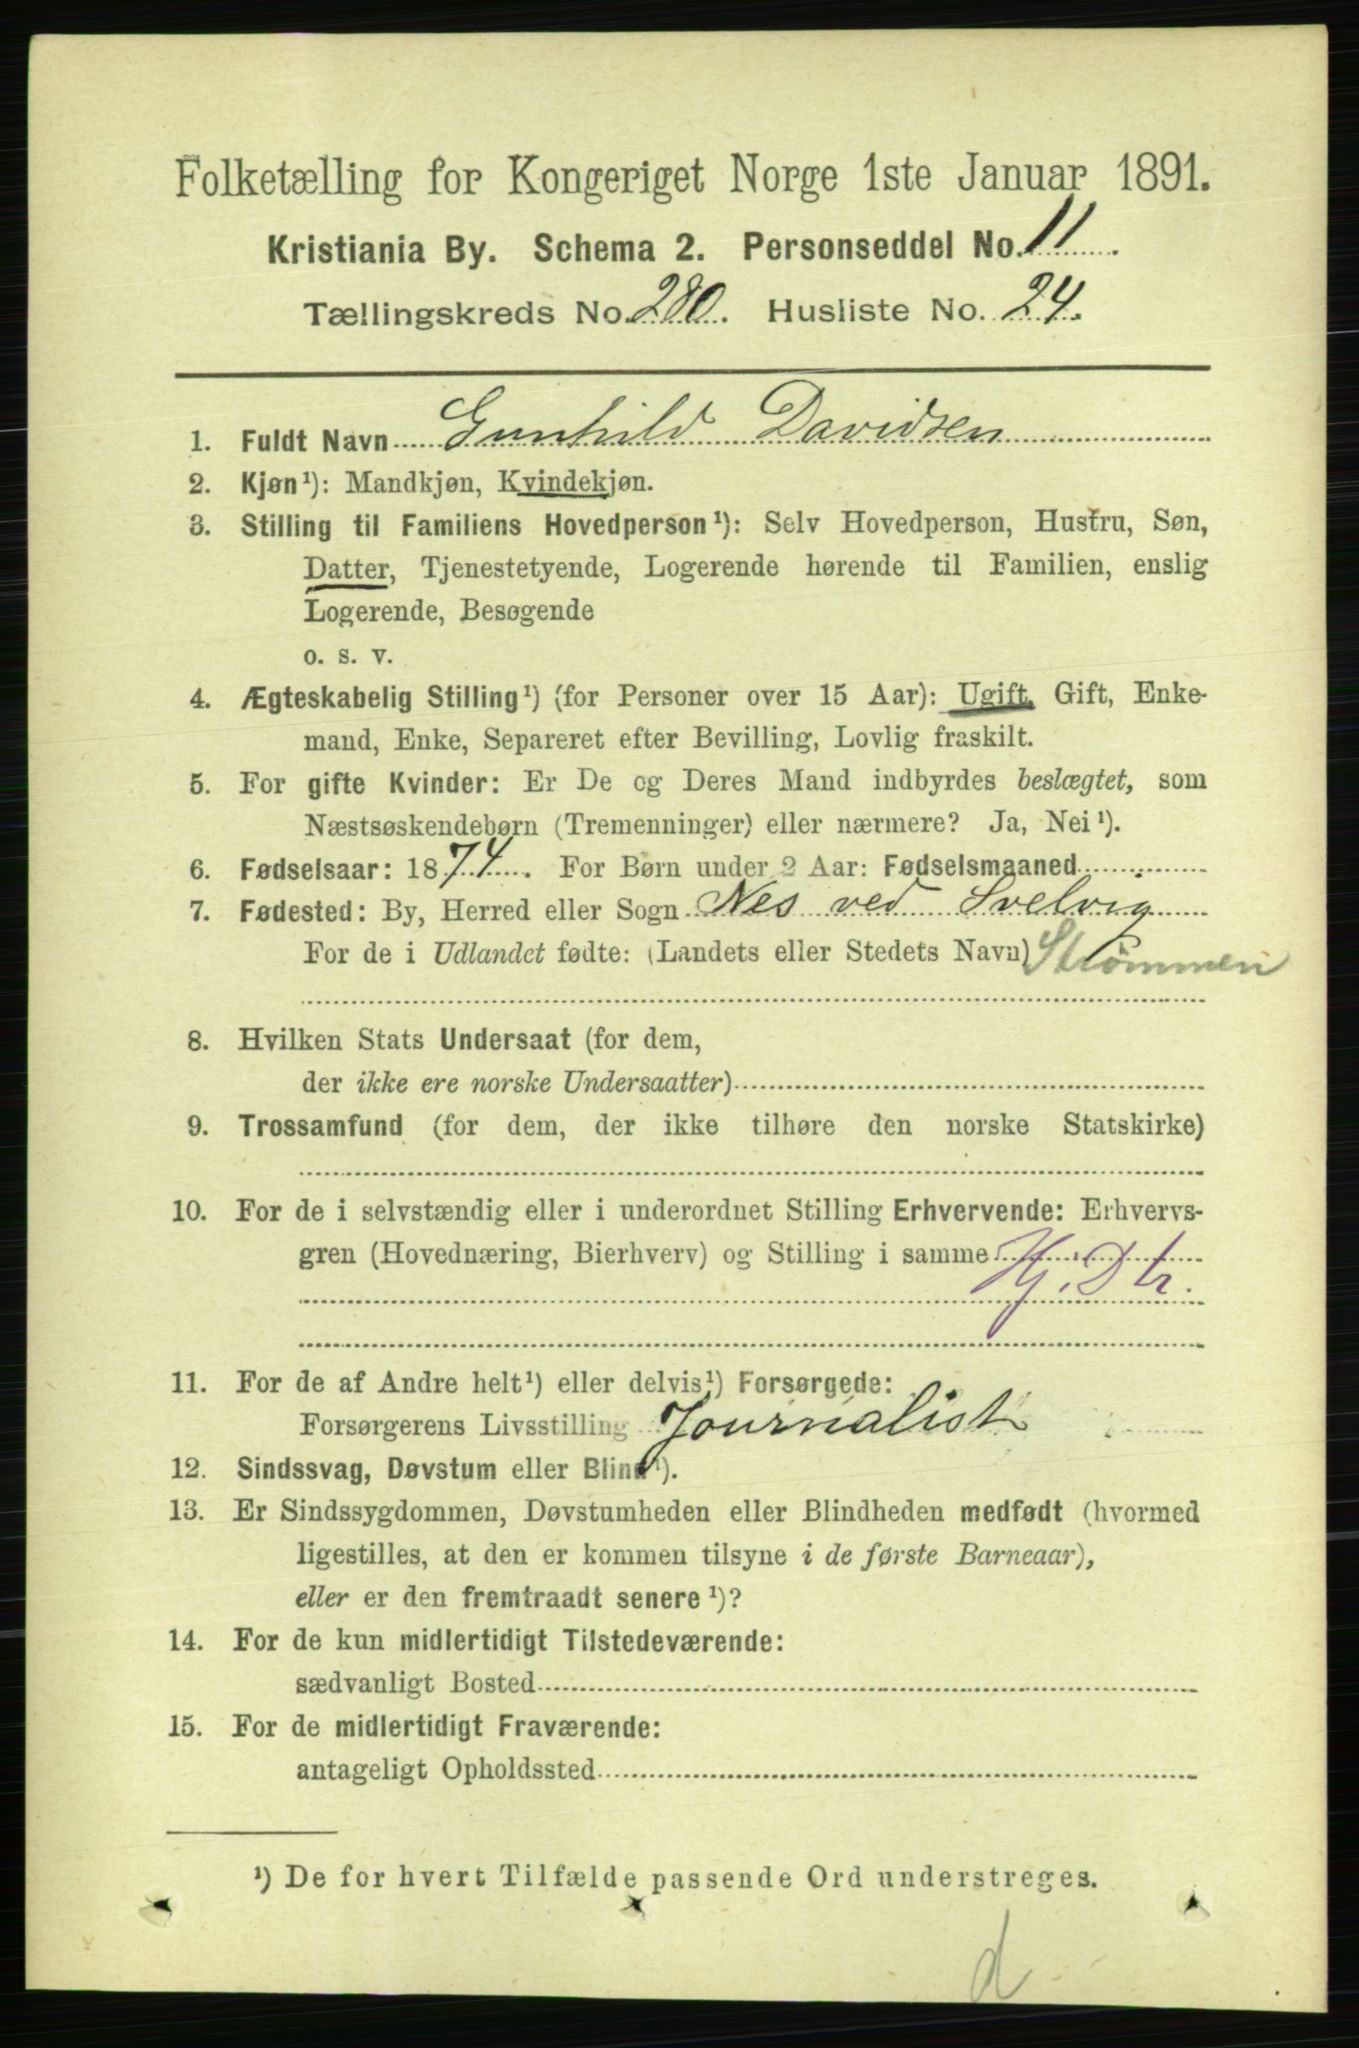 Folketælling for Kongeriget Norge 1ste Januar 1891.
Kristiania By. Schema 2. Personseddel No. 11.
Tællingskreds No. 280. Husliste No. 24.
1. Fuldt Navn Gunhild Davidsen
2. Kjøn¹): Mandkjøn, Kvindekjøn.
3. Stilling til Familiens Hovedperson¹): Selv Hovedperson, Hustru, Søn,
Datter, Tjenestetyende, Logerende hørende til Familien, enslig
Logerende, Besøgende
o. s. v.
4. Ægteskabelig Stilling¹) (for Personer over 15 Aar): Ugift, Gift, Enke-
mand, Enke, Separeret efter Bevilling, Lovlig fraskilt.
5. For gifte Kvinder: Er De og Deres Mand indbyrdes beslægtet, som
Næstsøskendebørn (Tremenninger) eller nærmere? Ja, Nei¹).
6. Fødselsaar: 1874. For Børn under 2 Aar: Fødselsmaaned
7. Fødested: By, Herred eller Sogn Nes ved Svelvig
For de i Udlandet fødte: (Landets eller Stedets Navn) Strømmen
8. Hvilken Stats Undersaat (for dem,
der ikke ere norske Undersaatter)
9. Trossamfund (for dem, der ikke tilhøre den norske Statskirke)
10. For de i selvstændig eller i underordnet Stilling Erhvervende: Erhvervs-
gren (Hovednæring, Bierhverv) og Stilling i samme
Hj. Dtr.
11. For de af Andre helt¹) eller delvis¹) Forsørgede:
Forsørgerens Livsstilling Journalist
12. Sindssvag, Døvstum eller Blind¹).
13. Er Sindssygdommen, Døvstumheden eller Blindheden medfødt (hvormed
ligestilles, at den er kommen tilsyne i de første Barneaar),
eller er den fremtraadt senere¹)?
14. For de kun midlertidigt Tilstedeværende:
sædvanligt Bosted
15. For de midlertidigt Fraværende:
antageligt Opholdssted
¹) De for hvert Tilfælde passende Ord understreges.
d